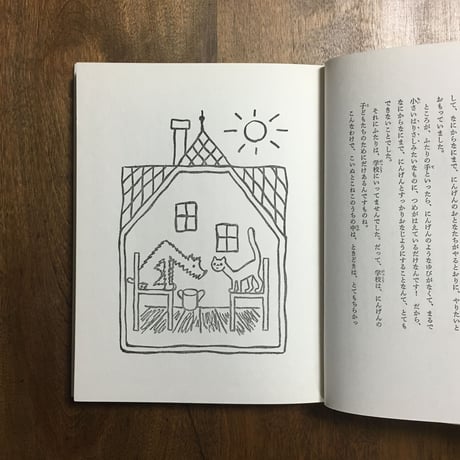 して、なにからなにまで、にんげんのおとなたちがやるとおりに、やりたいと
おもっていました。
ところが、ふたりの手といったら、にんげんのようなゆびがなくて、まるで
小さいはりさしみたいなものに、つめがはえているだけなんです！ だから、
なにからなにまで、にんげんとすっかりおなじようにすることなんて、とても
できないことでした。
それにふたりは、学校にいってませんでした。だって、学校は、にんげんの
子どもたちのためにだけあるんですものね。
こんなわけで、こいぬとこねこのうちの中は、ときどきは、とてもちらかっ